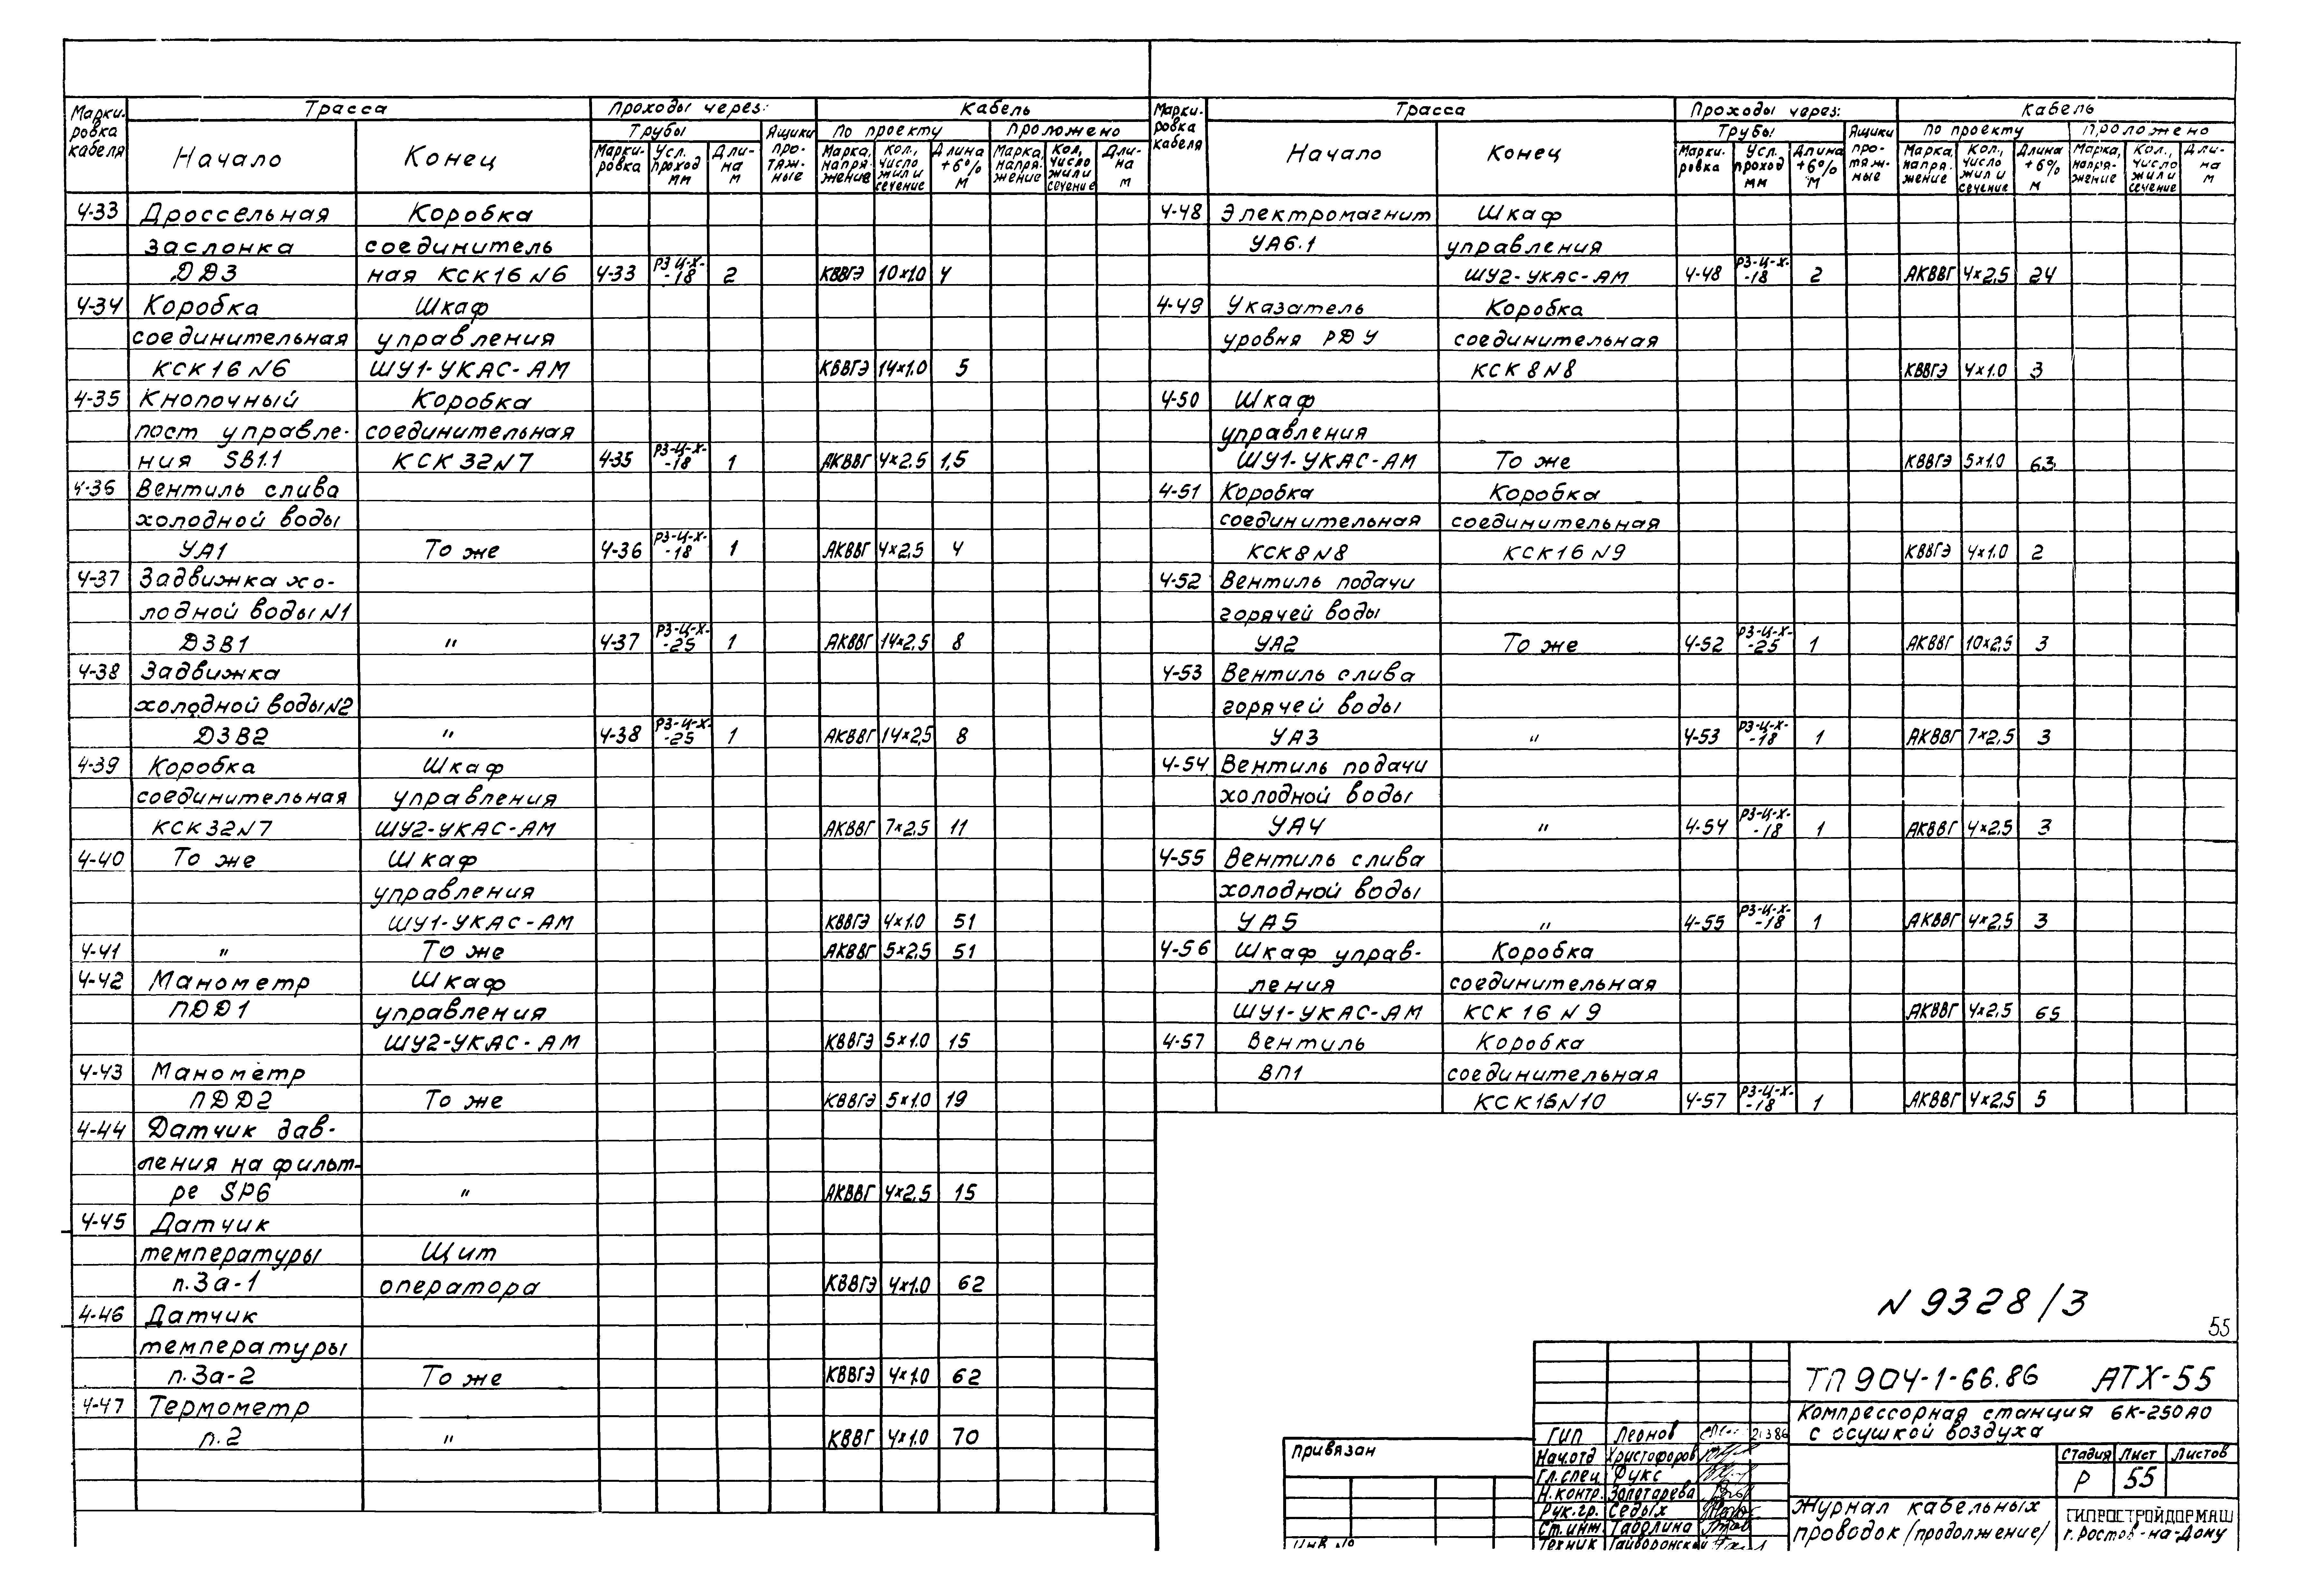 Марки-ровка кабеля | Трасса | Проходы через: | Кабель
Начало | Конец | Трубы | Ящики про-тяж-ные | По проекту | Проложено
Марки-ровка | Усл. проход мм | Дли-на м | Марка, напря-жение | Кол., число жил и сечение | Длина +6% м | Марка, напря-жение | Кол, число жил и сечение | Дли-на м
4-33 Дроссельная Коробка
заслонка соединитель
ДД3 ная КСК16 N6 4-33 РЗ-Ц-Х--18 2 КВВГЭ 10×1.0 4
4-34 Коробка Шкаф
соединительная управления
КСК16 N6 ШУ1-УКАС-АМ КВВГЭ 14×1.0 5
4-35 Кнопочный Коробка
пост управле- соединительная
ния SB1.1 КСК32N7 4-35 РЗ-Ц-Х--18 1 АКВВГ 4×2.5 1,5
4-36 Вентиль слива
холодной воды
УА1 То же 4-36 РЗ-Ц-Х--18 1 АКВВГ 4×2,5 4
4-37 Задвижка хо-
лодной воды N1
ДЗВ1 " 4-37 РЗ-Ц-Х--25 1 АКВВГ 14×2,5 8
4-38 Задвижка
холодной воды N2
ДЗВ2 " 4-38 РЗ-Ц-Х--25 1 АКВВГ 14×2,5 8
4-39 Коробка Шкаф
соединительная управления
КСК32N7 ШУ2-УКАС-АМ АКВВГ 7×2,5 11
4-40 То же Шкаф
управления
ШУ1-УКАС-АМ КВВГЭ 4×1.0 51
4-41 " То же АКВВГ 5×2.5 51
4-42 Манометр Шкаф
ПДД1 управления
ШУ2-УКАС-АМ КВВГЭ 5×1.0 15
4-43 Манометр
ПДД2 То же КВВГЭ 5×1.0 19
4-44 Датчик дав-
ления на фильт-
ре SP6 " АКВВГ 4×2,5 15
4-45 Датчик
температуры Щит
п.3а-1 оператора КВВГЭ 4×1.0 62
4-46 Датчик
температуры
п.3а-2 То же КВВГЭ 4×1.0 62
4-47 Термометр
п.2 " КВВГ 4×1.0 70
Марки-ровка кабеля | Трасса | Проходы через: | Кабель
Начало | Конец | Трубы | Ящики про-тяж-ные | По проекту | Проложено
Марки-ровка | Усл. проход мм | Длина +6% м | Марка, напря-жение | Кол., число жил и сечение | Длина +6% м | Марка, напря-жение | Кол., число жил и сечение | Дли-на м
4-48 Электромагнит Шкаф
УА6.1 управления
ШУ2-УКАС-АМ 4-48 РЗ-Ц-Х--18 2 АКВВГ 4×2,5 24
4-49 Указатель Коробка
уровня РДУ соединительная
КСК8N8 КВВГЭ 4×1.0 3
4-50 Шкаф
управления
ШУ1-УКАС-АМ То же КВВГЭ 5×1.0 63
4-51 Коробка Коробка
соединительная соединительная
КСК8N8 КСК16N9 КВВГЭ 4×1.0 2
4-52 Вентиль подачи
горячей воды
УА2 То же 4-52 РЗ-Ц-Х--25 1 АКВВГ 10×2,5 3
4-53 Вентиль слива
горячей воды
УА3 " 4-53 РЗ-Ц-Х--18 1 АКВВГ 7×2,5 3
4-54 Вентиль подачи
холодной воды
УА4 " 4-54 РЗ-Ц-Х--18 1 АКВВГ 4×2,5 3
4-55 Вентиль слива
холодной воды
УА5 " 4-55 РЗ-Ц-Х--18 1 АКВВГ 4×2,5 3
4-56 Шкаф управ- Коробка
ления соединительная
ШУ1-УКАС-АМ КСК16N9 АКВВГ 4×2,5 65
4-57 Вентиль Коробка
ВП1 соединительная
КСК16N10 4-57 РЗ-Ц-Х--18 1 АКВВГ 4×2,5 5
N 9328/3
55
ТП 904-1-66.86 АТХ-55
Компрессорная станция 6К-250А0
с осушкой воздуха
Привязан
ГИП Леонов
Нач.отд Христофоров
Гл.спец Фукс
Н.контр. Золотарева
Рук.гр. Седых
Ст.инж. Таболина
Техник
Стадия Лист Листов
Р 55
Журнал кабельных
проводок /продолжение/
ГИПРОСТРОЙДОРМАШ
г. Ростов-на-Дону